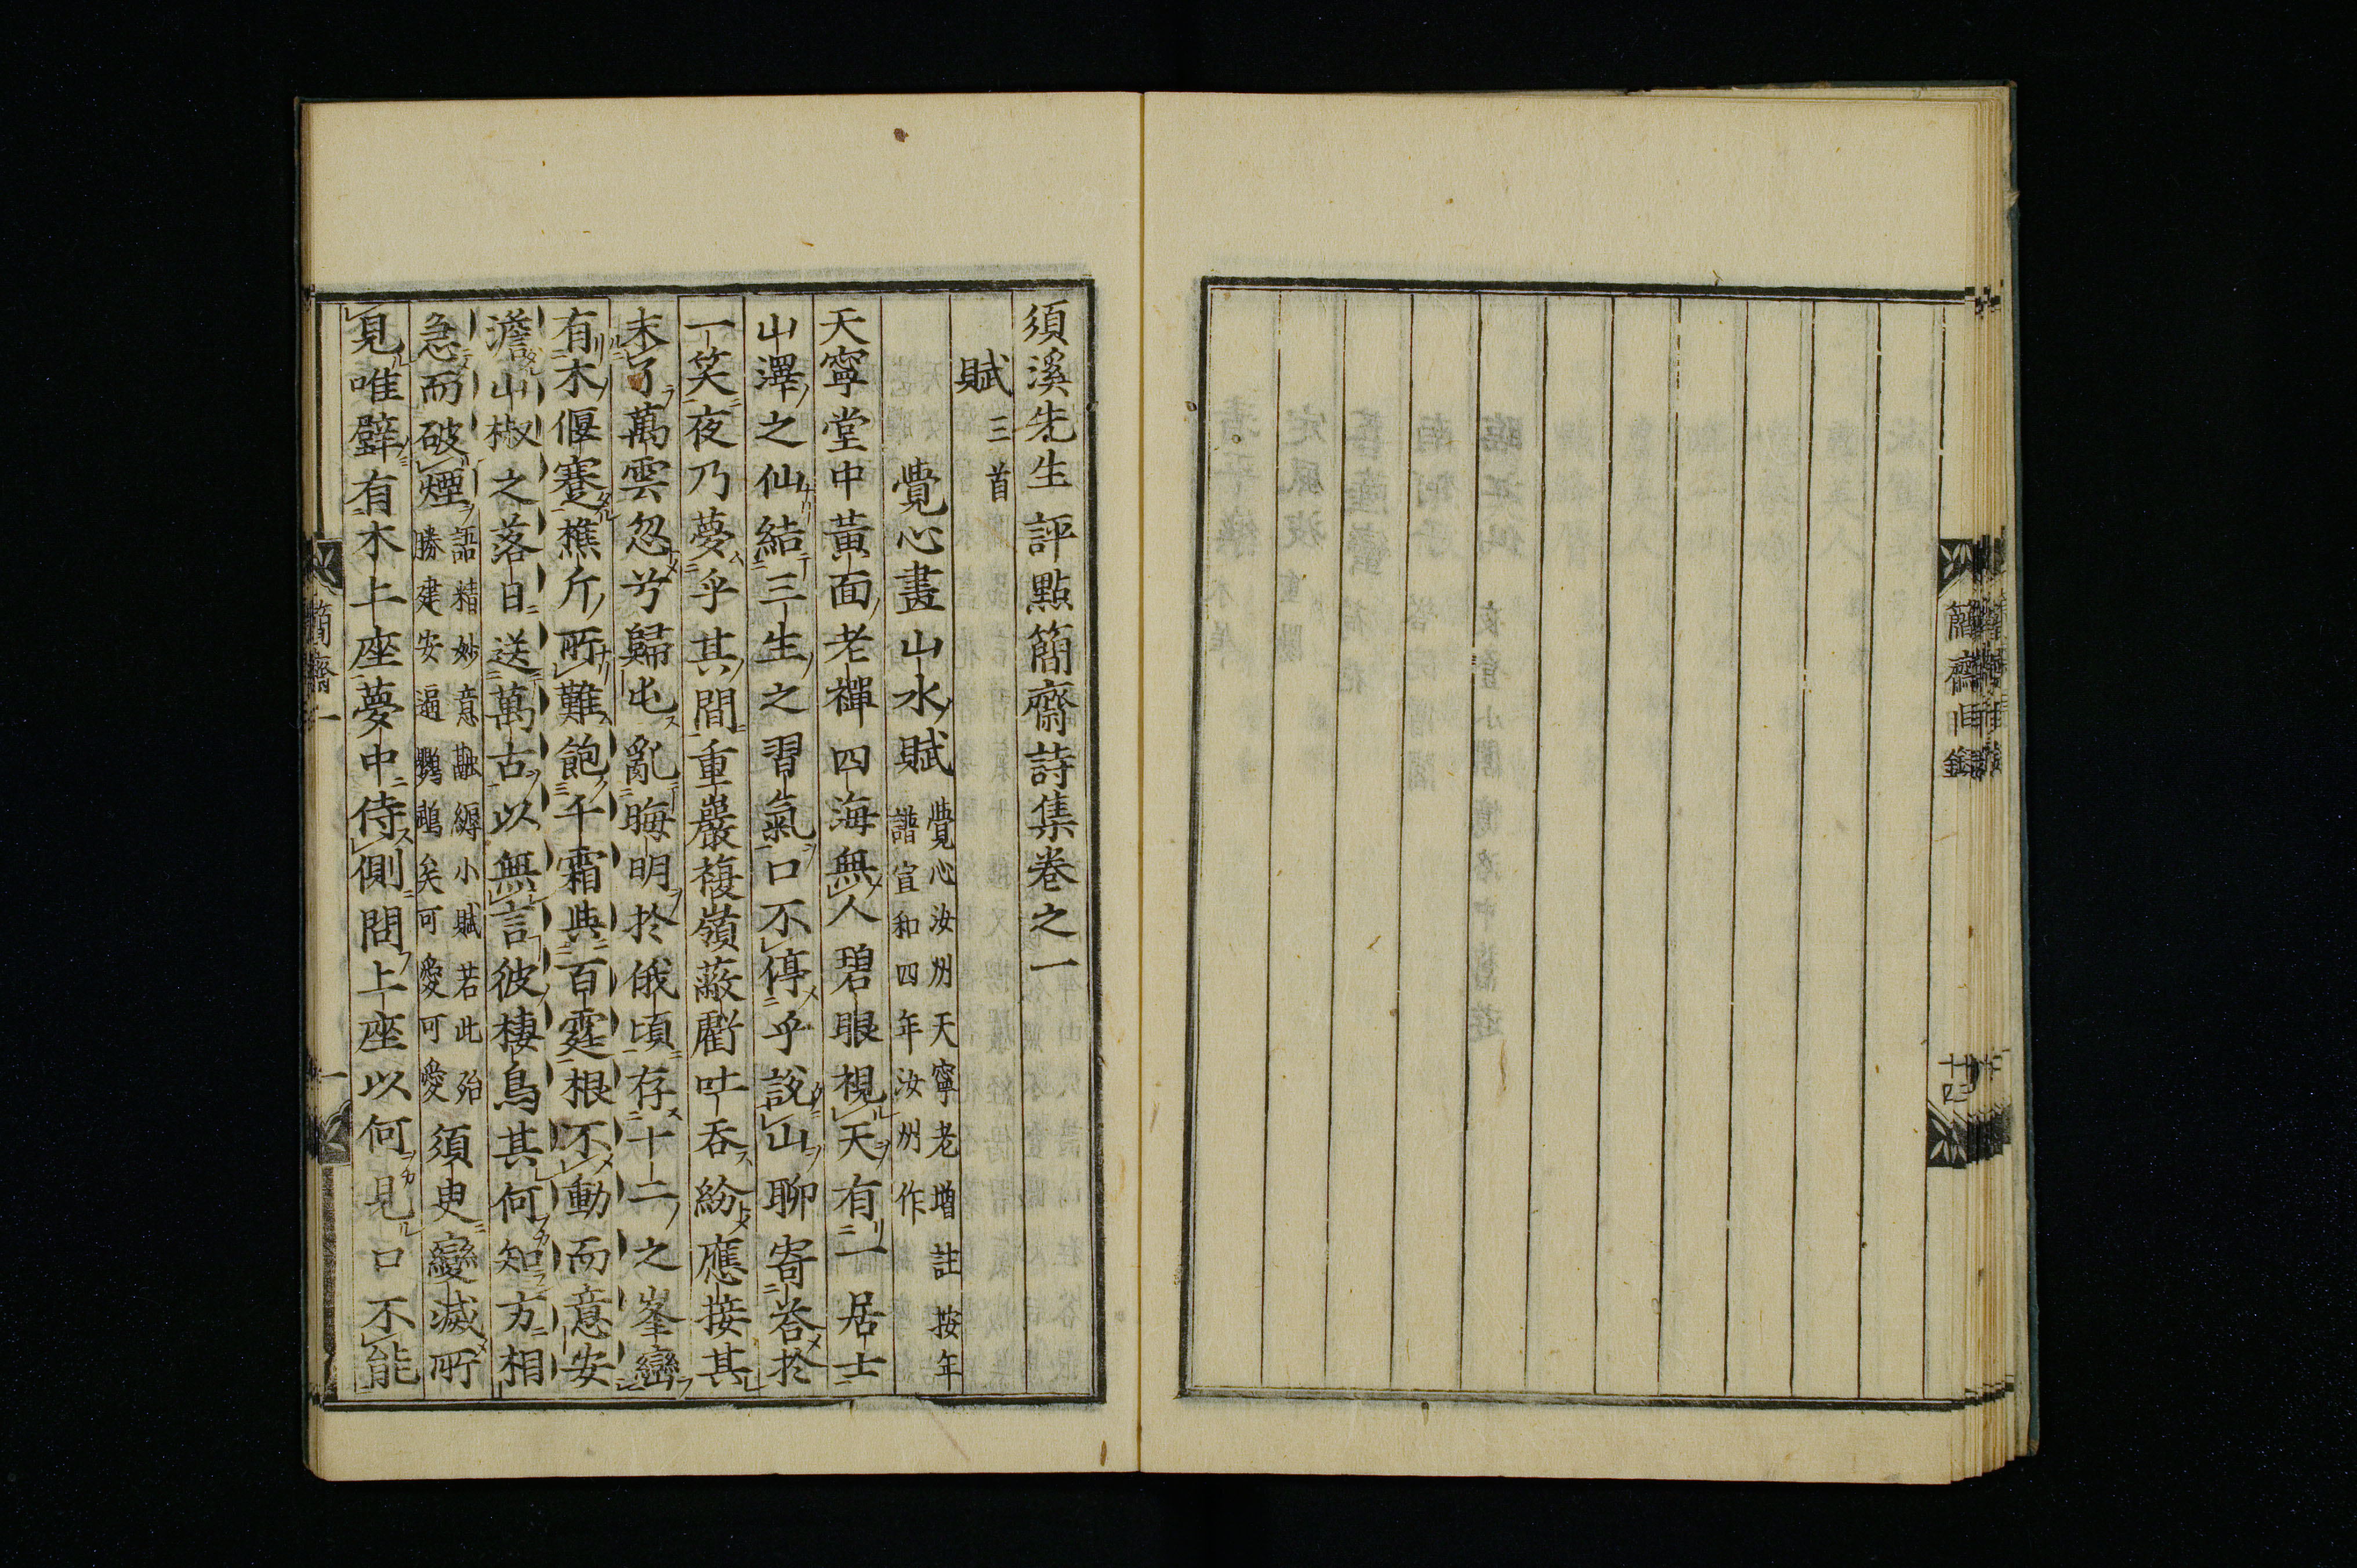 須溪先生評點簡齋詩集卷之一
賦三首
覺心畫山水賦
覺心汝州天寧老增註按年
譜宣和四年汝州作
天寧堂中黃面老禪四海無人碧眼視天有一居士
山澤之仙結三生之習氣口不停乎說山聊寄答於
一笑夜乃夢乎其間重巖複嶺蔽虧吐吞紛應接其
未了萬雲忽兮歸屯亂晦明於俄頃存十二之峯巒
有木偃蹇樵斤所難飽千霜與百霆根不動而意安
澹山椒之落日送萬古以無言彼棲鳥其何知方相
急而破煙
語精妙意融縟小賦若此殆
勝建安逼鸚鵡矣可愛可愛
須臾變滅所
見唯壁有木上座夢中侍側問上座以何見口不能
簡齋一
一
簡齋目錄